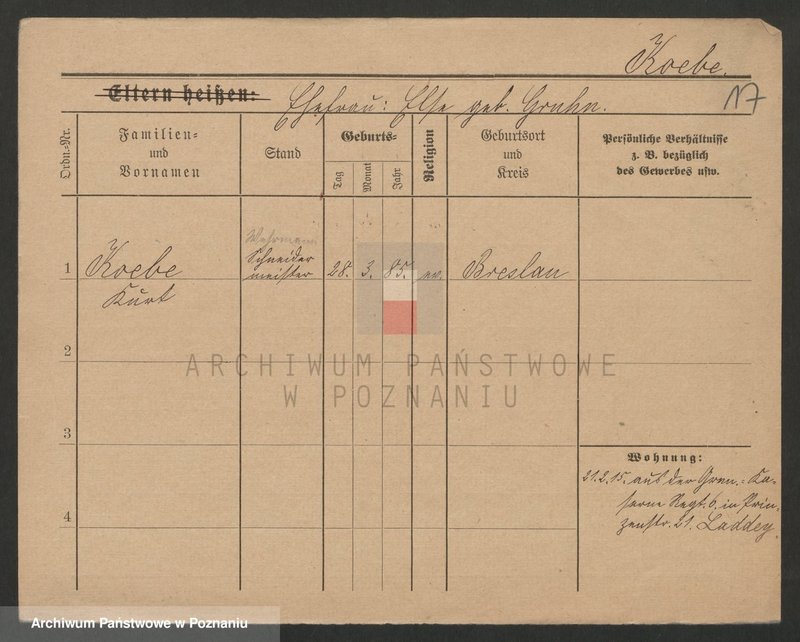 Koebe.
Eltern heißen:
Ehefrau: Else geb. Gruhn.
17
Ordn.-Nr.
Familien=
und
Vornamen
Stand
Geburts=
Tag
Monat
Jahr
Religion
Geburtsort
und
Kreis
Persönliche Verhältnisse
z. B. bezüglich
des Gewerbes usw.
Wehrmann
1
Koebe
Kurt
Schneider
meister
28.
3.
85.
ev.
Breslau
2
ARCHIWUM PAŃSTWOWE
W POZNANIU
3
Wohnung:
21.2.15. aus der Gren.: Ka-
serne Regt. 6. in Prin-
zenstr. 21. Laddey
4
Archiwum Państwowe w Poznaniu